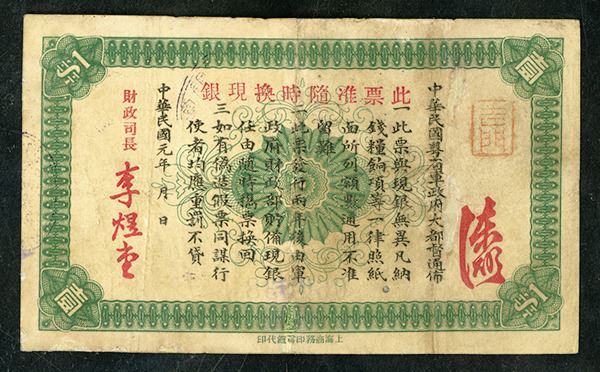 個
此票准隨時換現銀
中華民國粵省軍政府大都督通佈
一此票與現銀無異凡納
錢糧餉項等一律照紙
面所列額數通用不准
留難
一此票發行兩年後由軍
政府財政部貯備現銀
任由隨時揭票換回
三如有偽造假票同謀行
使者均應重罰不貸
中華民國元年 月 日
財政司長 李煜堂
個
上海商務印書館代印